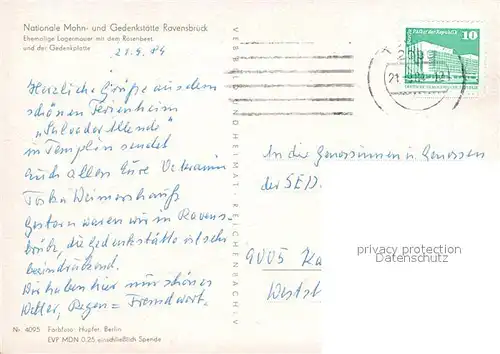 Nationale Mahn- und Gedenkstätte Ravensbrück
Ehemalige Lagermauer mit dem Rosenbeet
und der Gedenkplatte
21.9.84
Herzliche Grüße aus dem
schönen Ferienheim
"Salvador Allende"
in Templin sendet
Euch allen Eure Veteranin
Gestern waren wir in Ravens-
brück, die Gedenkstätte ist sehr
beeindruckend.
Wir haben hier nur schönes
Wetter, Regen = Fremdwort.
Nr. 4095 Farbfoto: Hupfer, Berlin
EVP MDN 0,25 einschließlich Spende
VEB BILD UND HEIMAT REICHENBACH I. V.
PALAST DER REPUBLIK
10
21
An die Genossinnen u. Genossen
der SED
9005 Ka
Westst
privacy protection
Datenschutz